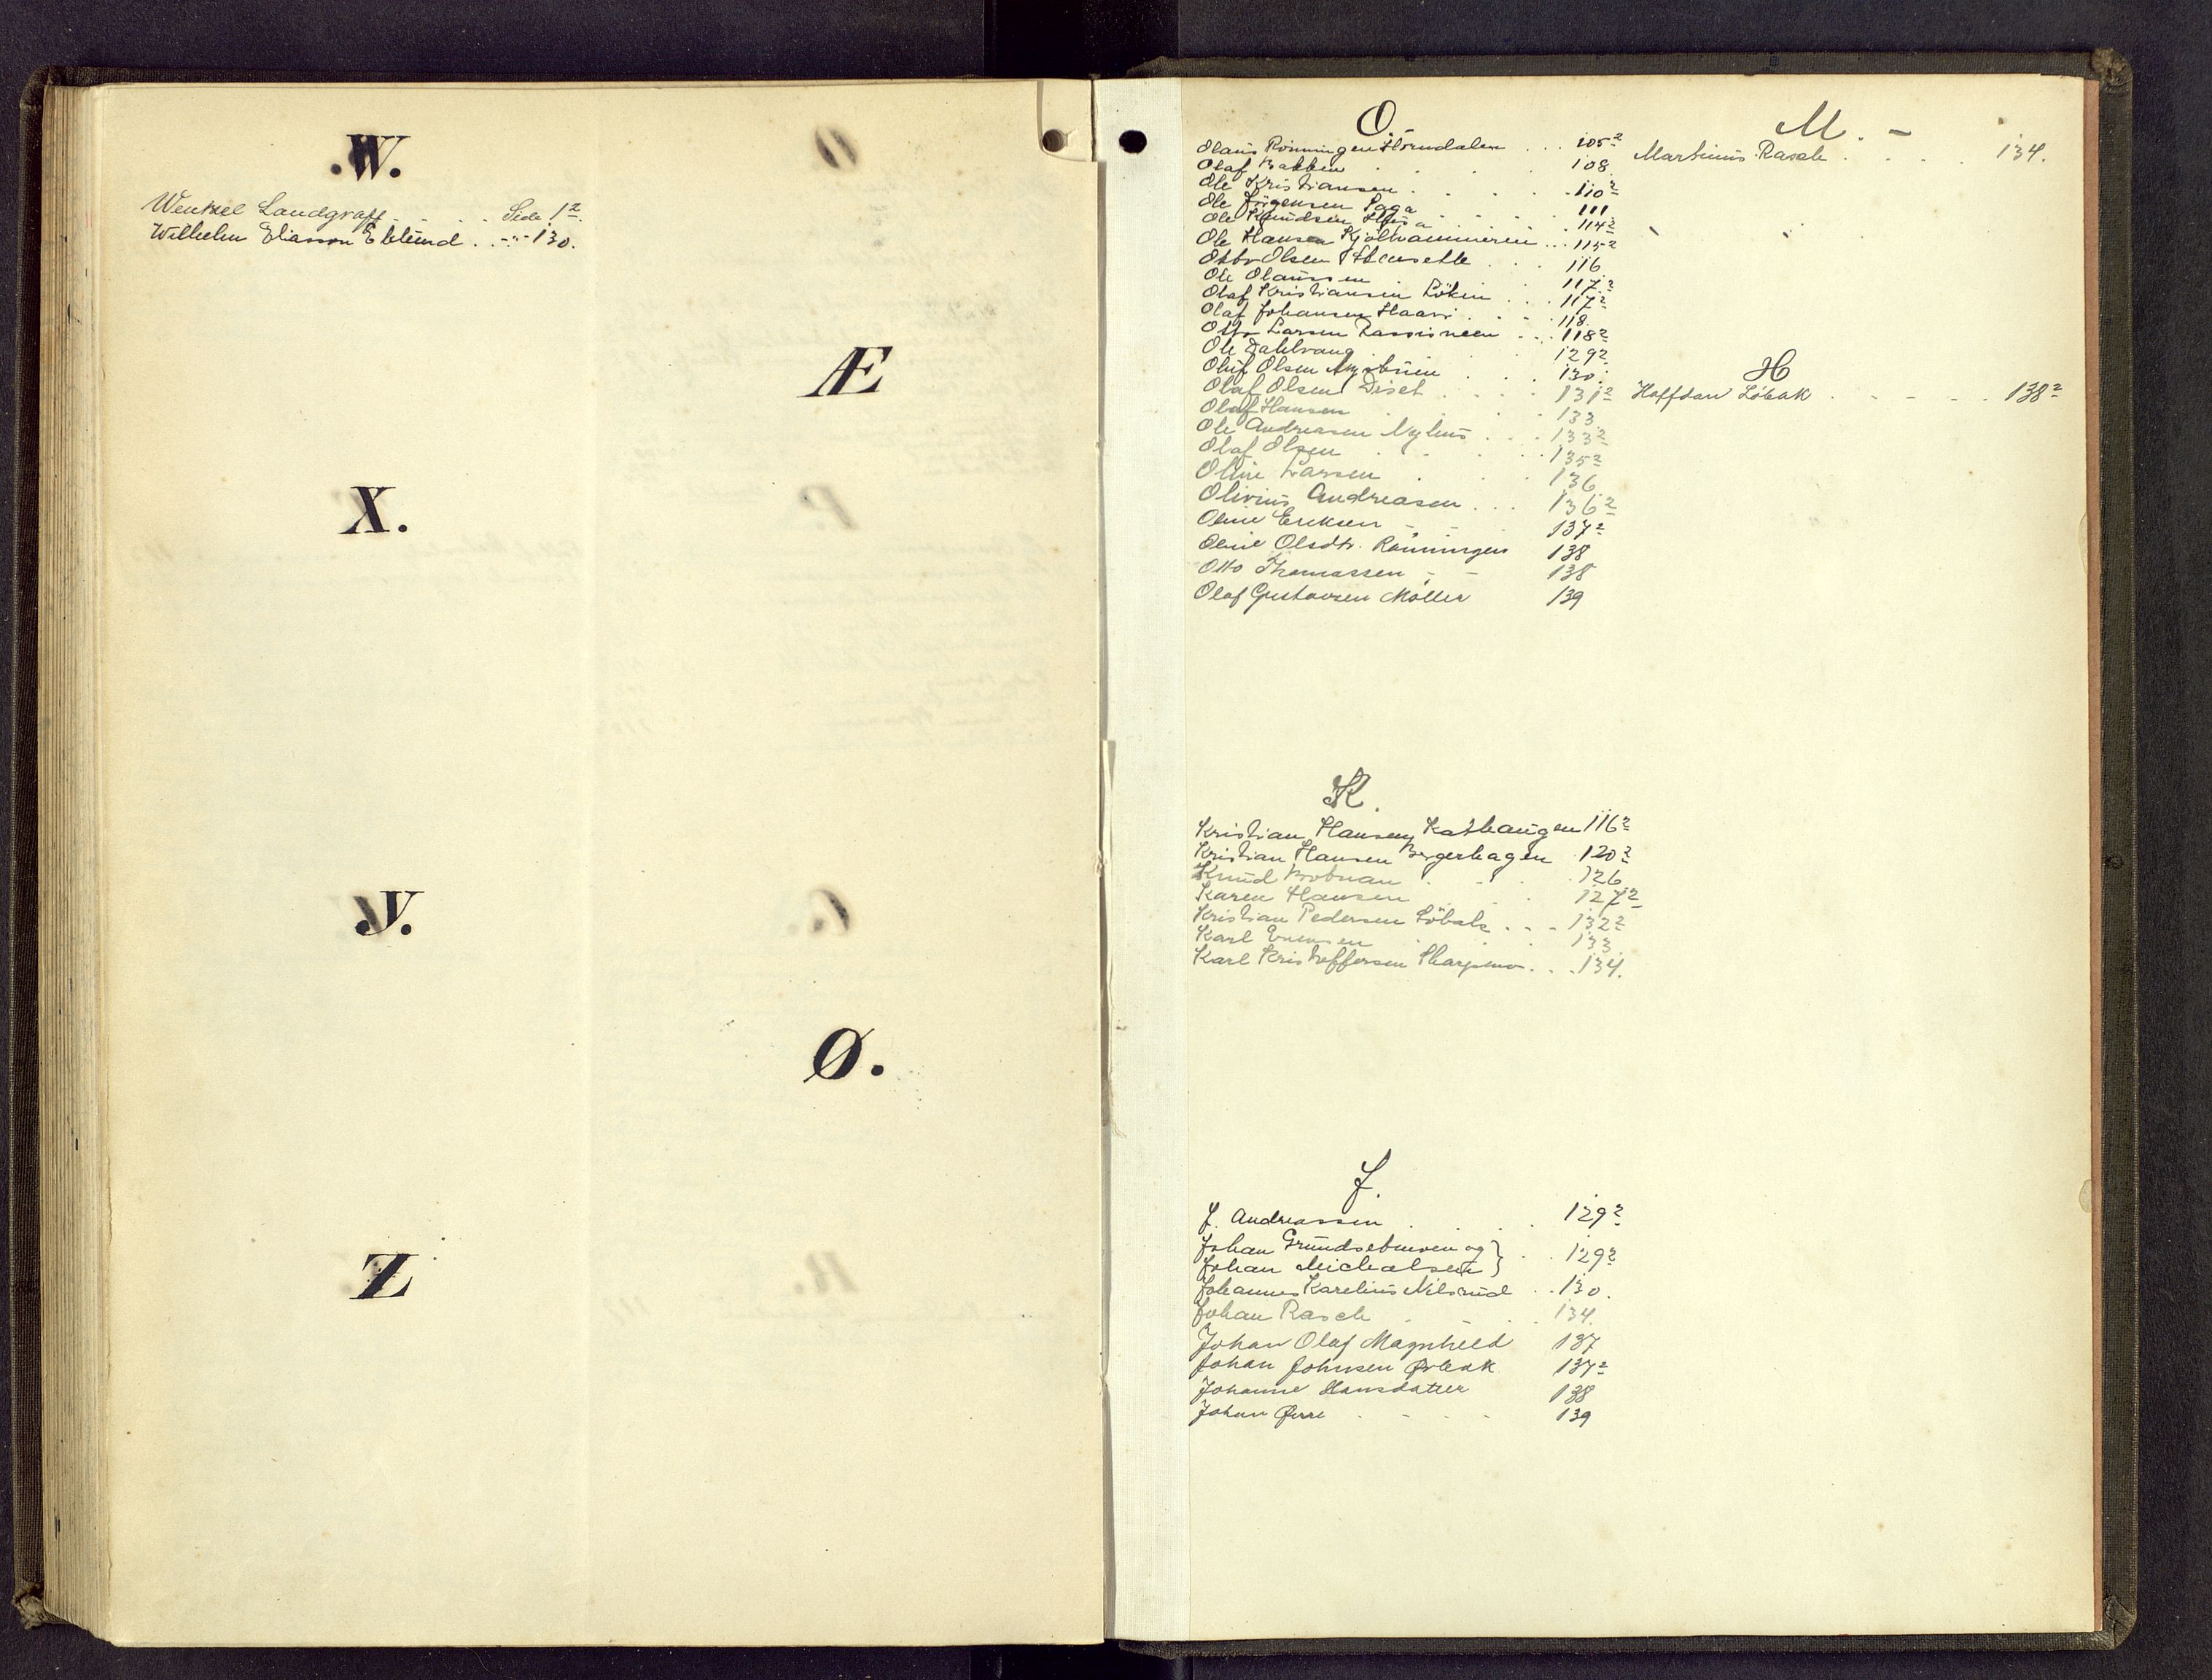 W.
Wenkel Landgraff . . . . Side 1²
Wilhelm Eliasson Eklund . . -"- 130.
X.
Y.
Z
Æ
Ø.
O.
Olaus Rönningen Hörndalen . . . 105²
Olaf Bakken . . . 108
Ole Kristiansen . . . . 110²
Ole Jörgensen Saga . . . 111
Ole Knudsen . . . 114²
Ole Hansen . . . 115²
Otto Olsen . . . 116
Ole Olaussen . . . 117²
Olaf Kristiansen Löken . . . 117²
Olaf Johansen Haavi . . . 118
Otto Larsen . . . 118²
Ole Dahlvang . . . 129²
Oluf Olsen Nystuen . . . 130.
Olaf Olsen Diset . . . . 131²
Olaf Hansen . . . 133
Ole Andreasen Nyhus . . . 133²
Olaf Olsen . . . . 135²
Oline Larsen . . . 136
Olivius Andreasen . . . 136²
Oline Eriksen - - 137²
Oline Olsdtr. Rönningen 138
Otto Thomassen - - 138
Olaf Gustavsen Möller 139
M. -
Martinius Rasch . . . . 134.
H
Halfdan Löbak . - - - . 138²
K.
Kristian Hansen Kathaugen 116²
Kristian Hansen Bergerhagen 120²
Knud . . . 126
Karen Hansen . . . 127²
Kristian Pedersen Löbak . . . 132²
Karl Evensen . . . 133
Karl Kristoffersen . . . 134.
J.
J. Andreassen . . . . 129²
Johan Grundsetmoen og }
Johan Michalsen } . . . 129²
Johannes Karelius Nilsrud . . 130.
Johan Rasch . . . 134.
Johan Olaf Magnhild 137
Johan Johnsen Örbak 137²
Johanne Hansdatter 138
Johan - - - 139